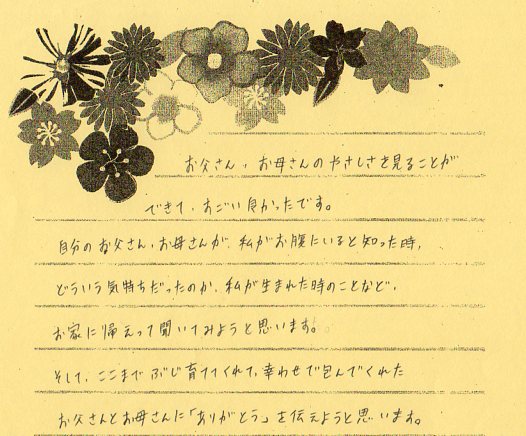 お父さん、お母さんのやさしさを見ることが
できて、すごい良かったです。
自分のお父さん、お母さんが、私がお腹にいると知った時、
どういう気持ちだったのか、私が生まれた時のことなど、
お家に帰えって聞いてみようと思います。
そして、ここまでぶじ育ててくれて、幸わせで包んでくれた
お父さんとお母さんに「ありがとう」を伝えようと思います。